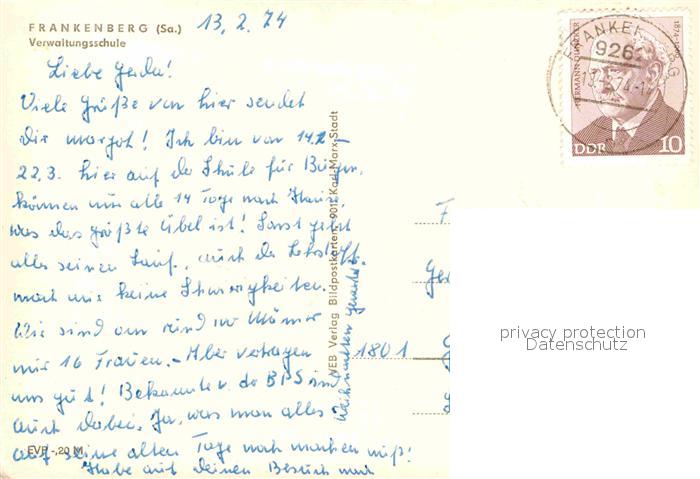 FRANKENBERG (Sa.)
Verwaltungsschule
13.2.74
Liebe Gerda!
Viele Grüße von hier sendet
Dir Margot! Ich bin von 14.2. –
22.3. hier auf der Schule für Bürgerm.
können nur alle 14 Tage nach Hause,
was das größte Übel ist! Sonst geht
alles seinen Lauf, auch der Lehrstoff
macht mir keine Schwierigkeiten.
Wir sind an rund 100 Männer
mit 16 Frauen. – Aber vertragen
uns gut! Bekannte v. der BPS sind
auch dabei. Ja, was man alles
auf seine alten Tage noch machen muß!
Habe auf Deinen Besuch
Weihnachten gewartet.
EVP -,20 M
VEB Verlag Bildpostkarten, 901 Karl-Marx-Stadt
1801
FRANKENBERG
926
13.2.74-1
HERMANN DUNCKER
1874-
DDR
10
privacy protection
Datenschutz